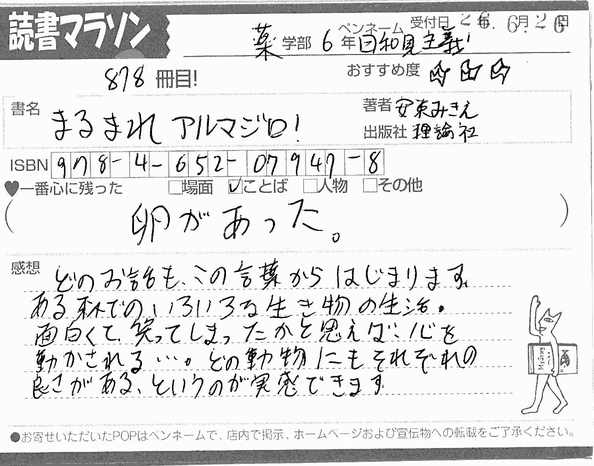 読書マラソン
受付日 26.6月26日
薬学部 6年 ペンネーム 日和見主義
878冊目!
おすすめ度 ☆☆☆
書名 まるまれアルマジロ!
著者 安東みきえ
出版社 理論社
ISBN 978-4-652-07947-8
♥一番心に残った □場面 ☑ことば □人物 □その他
(卵があった。)
感想 どのお話も、この言葉からはじまります。
ある森でのいろいろな生き物の生活。
面白くて、笑ってしまったかと思えば、心を
動かされる…。どの動物にもそれぞれの
良さがある、というのが実感できます
●お寄せいただいたPOPはペンネームで、店内で掲示、ホームページおよび宣伝物への転載をご了承ください。